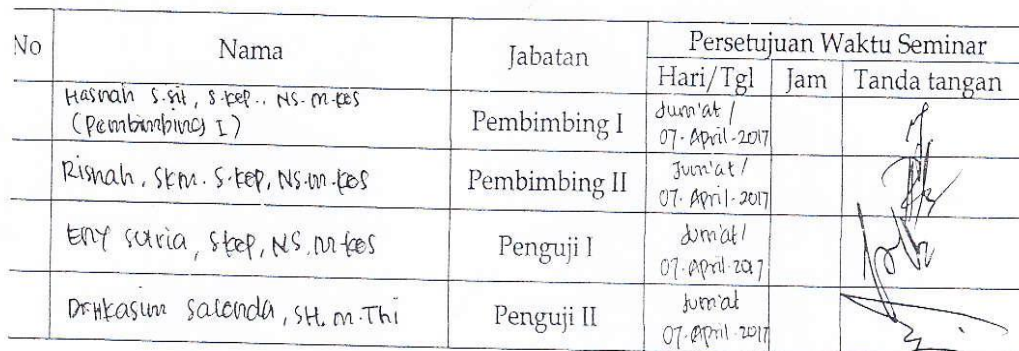 No Nama Jabatan Persetujuan Waktu Seminar
Hari/Tgl Jam Tanda tangan
Hasnah S.Sit, S.kep., NS. M.kes
(Pembimbing I) Pembimbing I Jum'at /
07. April-2017
Risnah, SKM. S.kep, NS.M.kes Pembimbing II Jum'at /
07. April-2017
Eny Sutria, Skep, NS. M.kes Penguji I Jum'at/
07-April-2017
Dr.H.Kasim Salenda, SH, M.Thi Penguji II Jum'at
07-April-2017